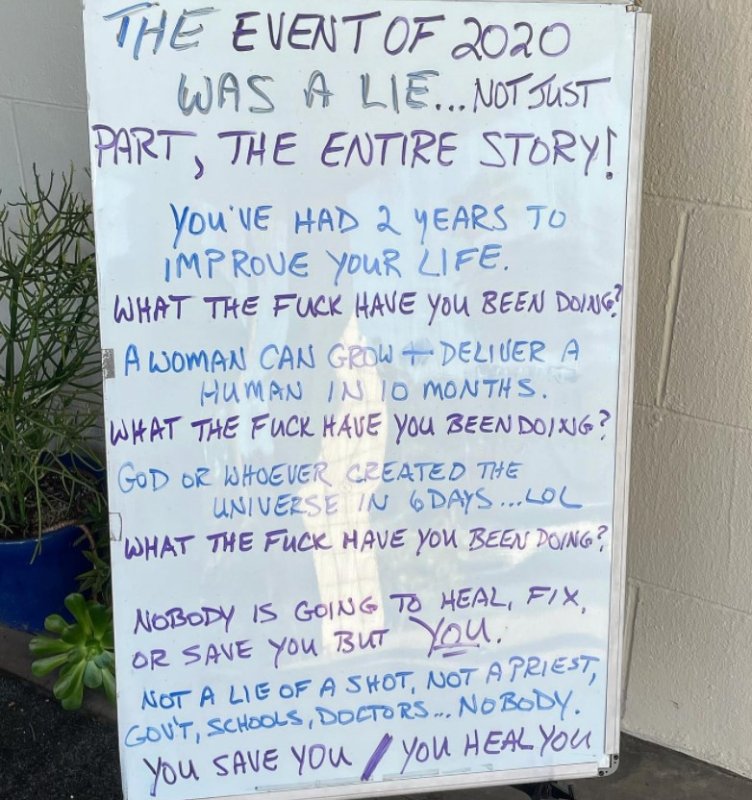 THE EVENT OF 2020
WAS A LIE... NOT JUST
PART, THE ENTIRE STORY!
YOU'VE HAD 2 YEARS TO
IMPROVE YOUR LIFE.
WHAT THE FUCK HAVE YOU BEEN DOING?
A WOMAN CAN GROW + DELIVER A
HUMAN IN 10 MONTHS.
WHAT THE FUCK HAVE YOU BEEN DOING?
GOD OR WHOEVER CREATED THE
UNIVERSE IN 6 DAYS... LOL
WHAT THE FUCK HAVE YOU BEEN DOING?
NOBODY IS GOING TO HEAL, FIX,
OR SAVE YOU BUT YOU.
NOT A LIE OF A SHOT, NOT A PRIEST,
GOV'T, SCHOOLS, DOCTORS... NOBODY.
YOU SAVE YOU / YOU HEAL YOU